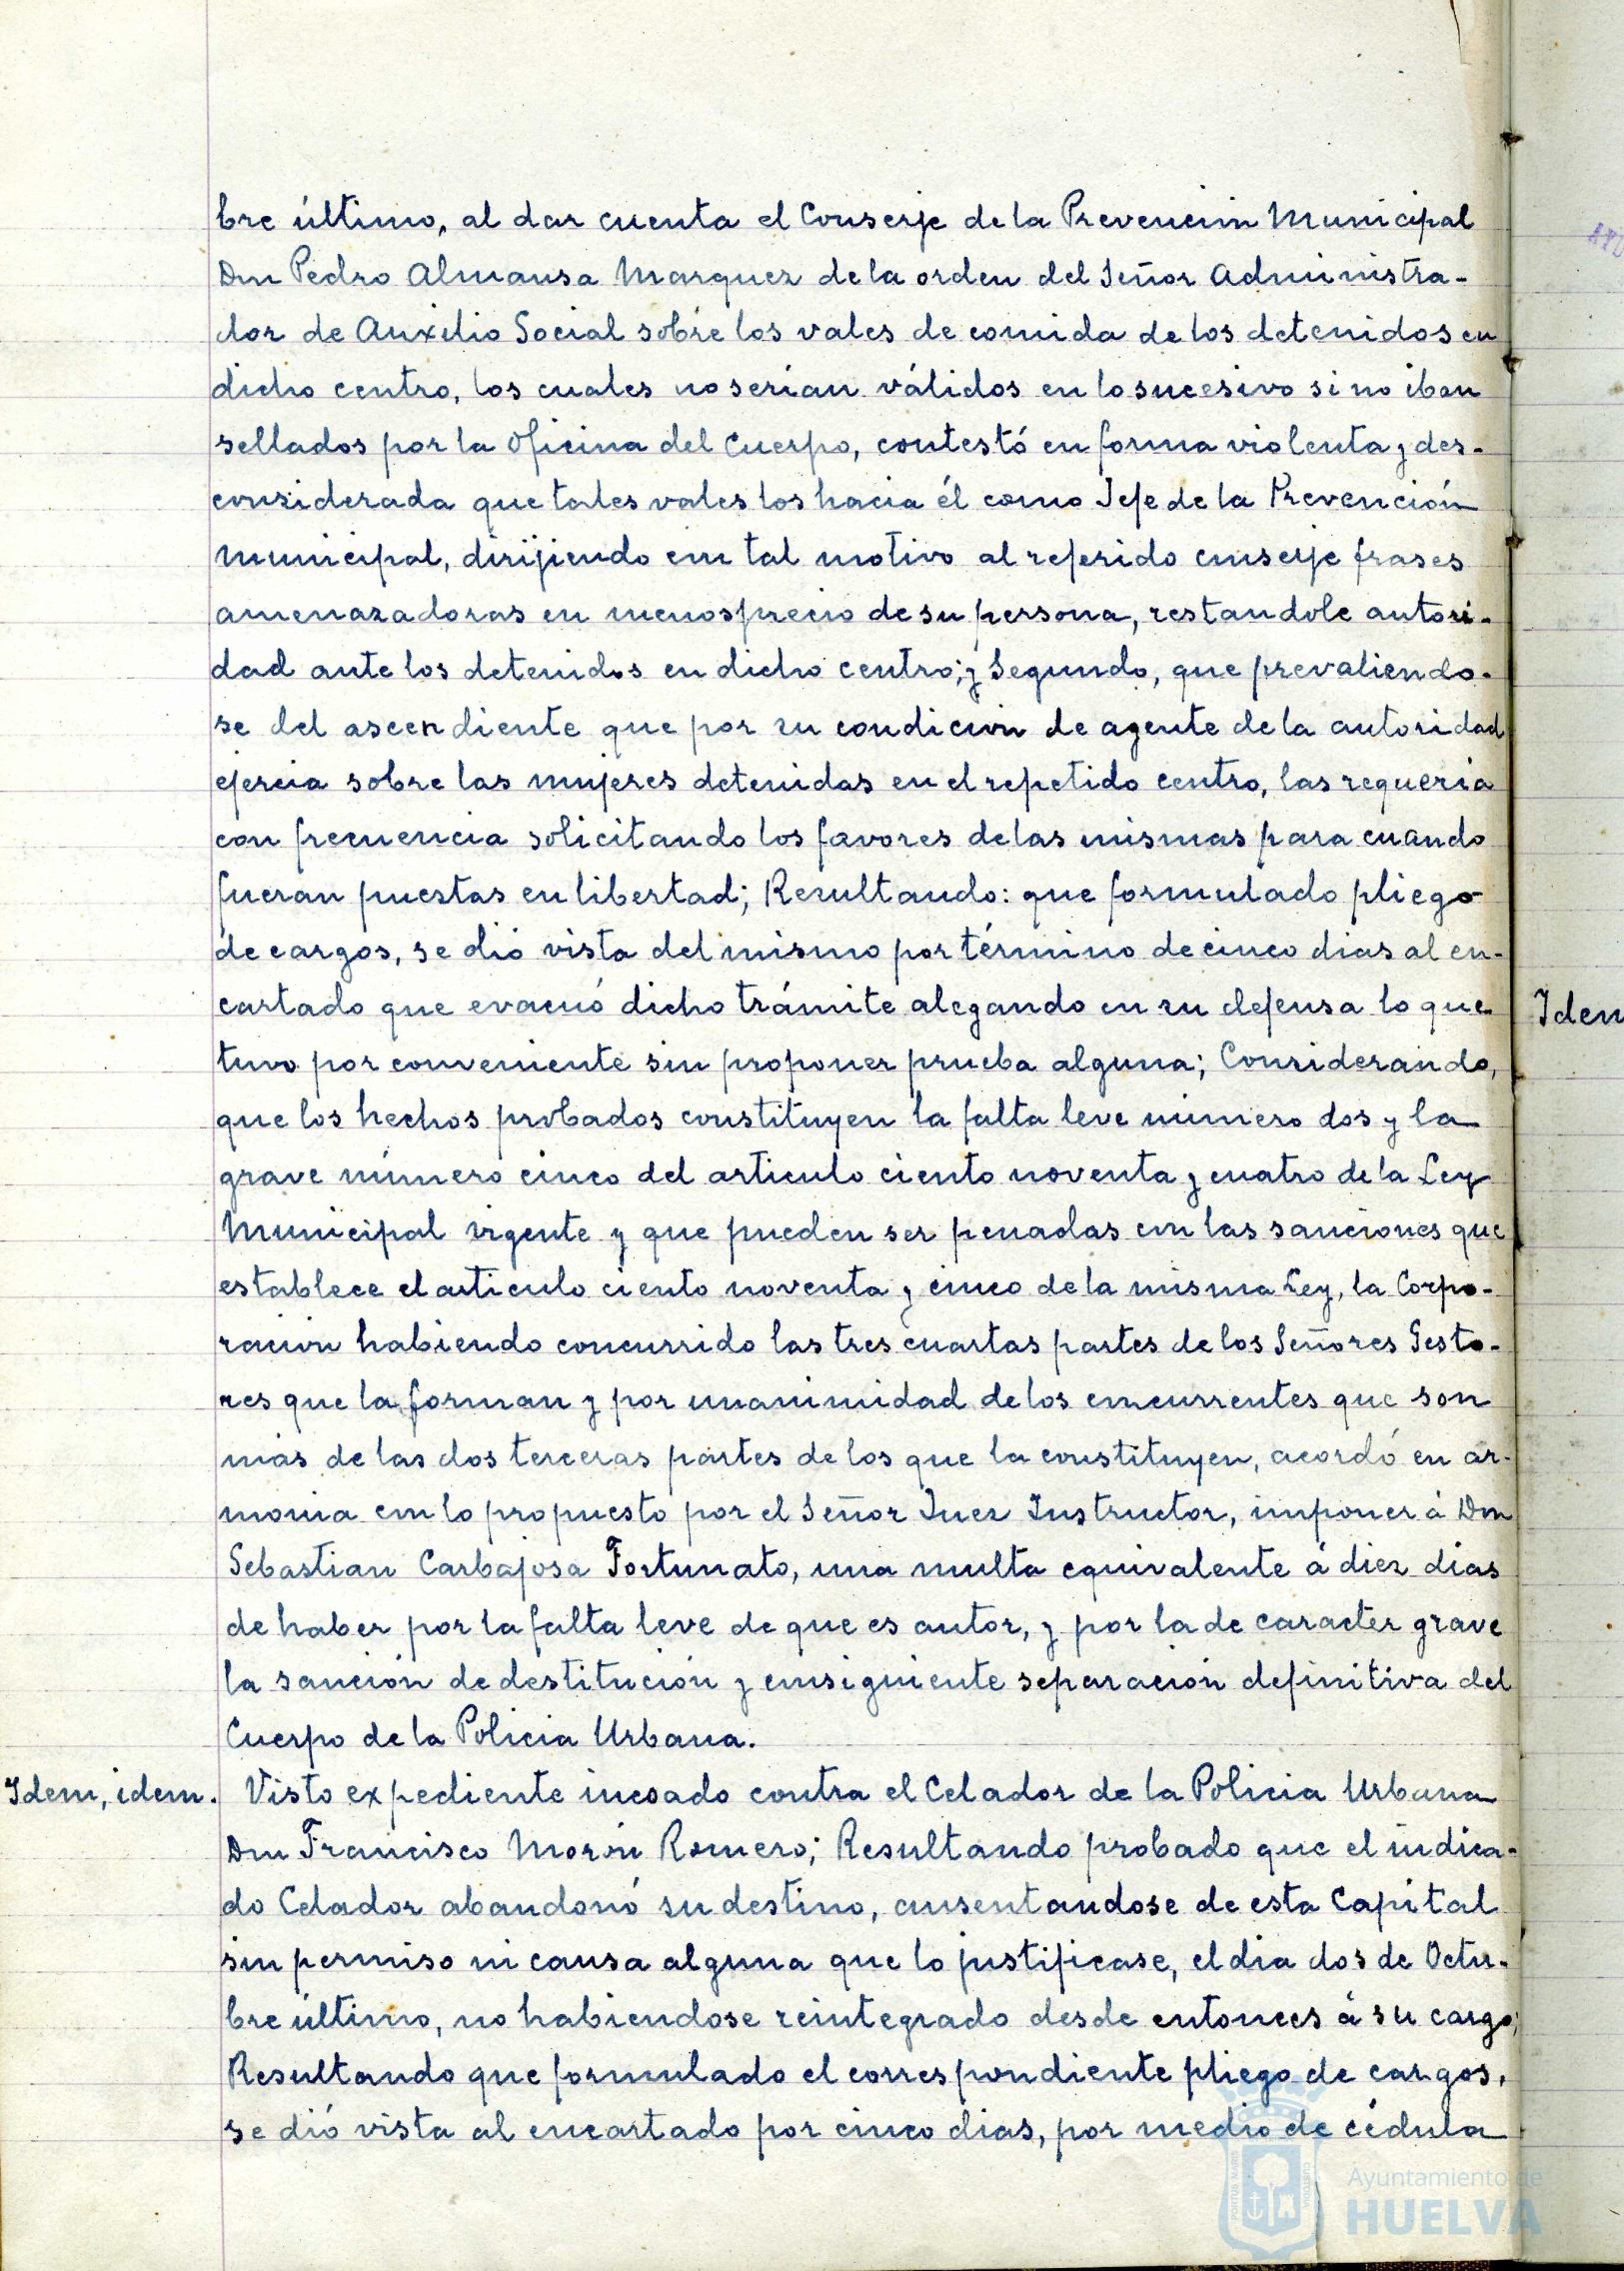 bre último, al dar cuenta el Conserje de la Prevención Municipal
Don Pedro Almansa Marquez de la orden del Señor Administra-
dor de Auxilio Social sobre los vales de comida de los detenidos en
dicho centro, los cuales no serian válidos en lo sucesivo si no iban
sellados por la Oficina del Cuerpo, contestó en forma violenta y des-
considerada que tales vales los hacia él como Jefe de la Prevención
Municipal, dirijiendo con tal motivo al referido conserje frases
amenazadoras en menosprecio de su persona, restandole autori-
dad ante los detenidos en dicho centro; y Segundo, que prevaliendo-
se del ascendiente que por su condicion de agente de la autoridad
ejercia sobre las mujeres detenidas en el repetido centro, las requeria
con frecuencia solicitando los favores de las mismas para cuando
fueran puestas en libertad; Resultando: que formulado pliego
de cargos, se dió vista del mismo por término de cinco dias al en-
cartado que evacuó dicho trámite alegando en su defensa lo que
tuvo por conveniente sin proponer prueba alguna; Considerando,
que los hechos probados constituyen la falta leve número dos y la
grave número cinco del articulo ciento noventa y cuatro de la Ley
Municipal vigente y que pueden ser penadas con las sanciones que
establece el articulo ciento noventa y cinco de la misma Ley, la Corpo-
ración habiendo concurrido las tres cuartas partes de los Señores Gesto-
res que la forman y por unanimidad de los concurrentes que son
más de las dos terceras partes de los que la constituyen, acordó en ar-
monia con lo propuesto por el Señor Juez Instructor, imponer á Don
Sebastian Carbajosa Fortunato, una multa equivalente á diez dias
de haber por la falta leve de que es autor, y por la de caracter grave
la sanción de destitución y consiguiente separación definitiva del
Cuerpo de la Policia Urbana.
Idem, idem. Visto expediente incoado contra el Celador de la Policia Urbana
Don Francisco Morón Romero; Resultando probado que el indica-
do Celador abandonó su destino, ausentandose de esta Capital
sin permiso ni causa alguna que lo justificase, el dia dos de Octu-
bre último, no habiendose reintegrado desde entonces á su cargo;
Resultando que formulado el correspondiente pliego de cargos,
se dió vista al encartado por cinco dias, por medio de cédula
Idem
Ayuntamiento de
HUELVA